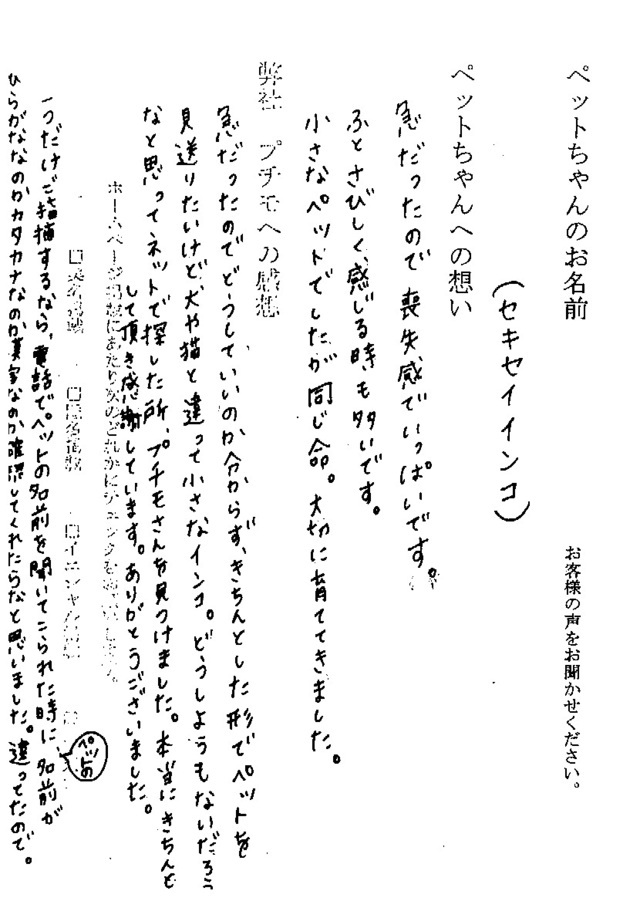 お客様の声をお聞かせください。
ペットちゃんのお名前
(セキセイインコ)
ペットちゃんへの想い
急だったので喪失感でいっぱいです。
ふとさびしく、感じる時も多いです。
小さなペットでしたが同じ命。大切に育ててきました。
弊社 プチモへの感想
急だったのでどうしていいのか分からず、きちんとした形でペットを
見送りたいけど犬や猫と違って小さなインコ。どうしようもないだろう
なと思ってネットで探した所、プチモさんを見つけました。本当にきちんと
して頂き感謝しています。ありがとうございました。
ホームページ掲載にあたり次のどれかにチェックをお願いします。
一つだけご指摘するなら、電話でペットの名前を聞いてこられた時に名前が
ペットの
ひらがななのかカタカナなのか漢字なのか確認してくれたらなと思いました。違ってたので。